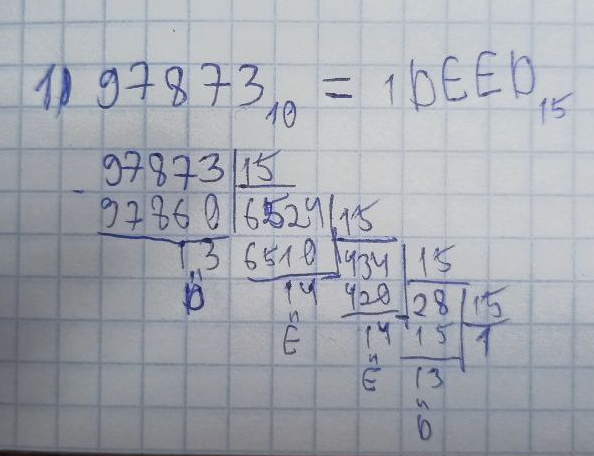 1) 97873₁₀ = 1DEED₁₅
97873 | 15
- 97860 | 6524 | 15
13 6510 | 434 | 15
D 14 420 | 28 | 15
E 14 15 | 1
E 13
D